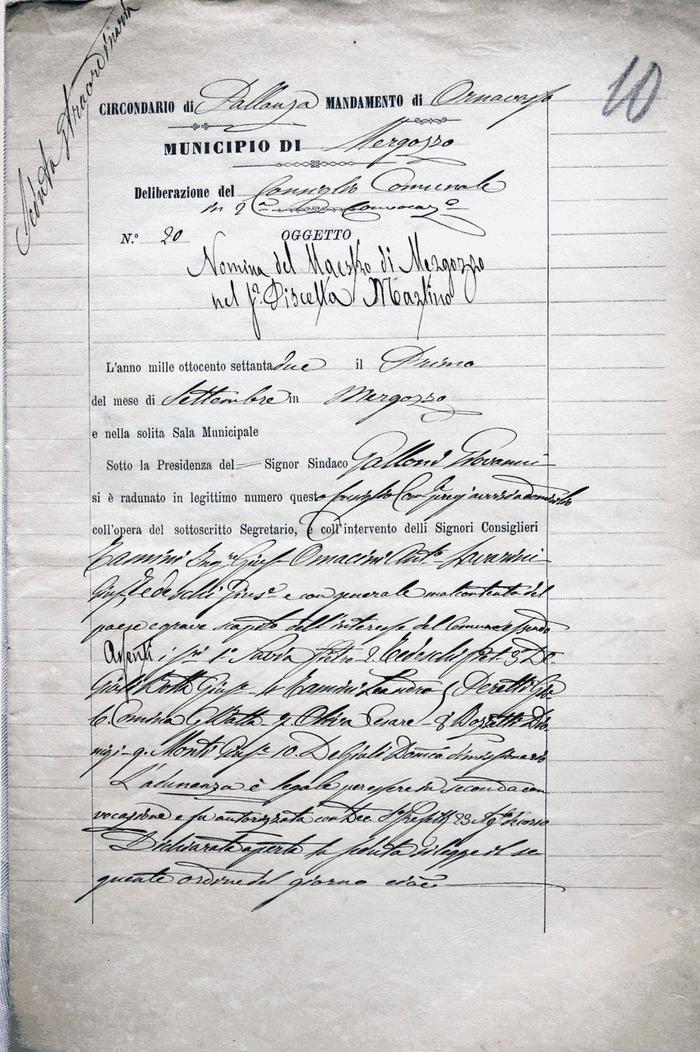 Seduta straordinaria
10
CIRCONDARIO di Pallanza MANDAMENTO di Ornavasso
MUNICIPIO DI Mergozzo
Deliberazione del Consiglio Comunale
in 2ª Convocazª
N.° 20 OGGETTO
Nomina del Maestro di Mergozzo
nel Sr Piscetta Martino
L'anno mille ottocento settanta due il Primo
del mese di Settembre in Mergozzo
e nella solita Sala Municipale
Sotto la Presidenza del Signor Sindaco Galloni Giovanni
si è radunato in legittimo numero questo Consiglio avvisi a domicilio
coll'opera del sottoscritto Segretario, e coll'intervento delli Signori Consiglieri
Tamini Ingre Giuse Omacini Anto
Tedeschi e con generale malcontento del
paese e grave scapito dell'interesse del Comune
Assenti i Sri 1° Pietro 2 Tedeschi 3° De
Giuli Giuse 4 Tamini Leandro 5 Peretti
6 Comina 7 Cesare 8
nigi 9. Monti Giuse 10. DeGiuli Domco dimissionario
L'adunanza è legale per essere in seconda con
vocazione e fu autorizzata con Dec. 23 Agto scorso
Dichiarata aperta la seduta si legge il se
guente ordine del giorno cioè